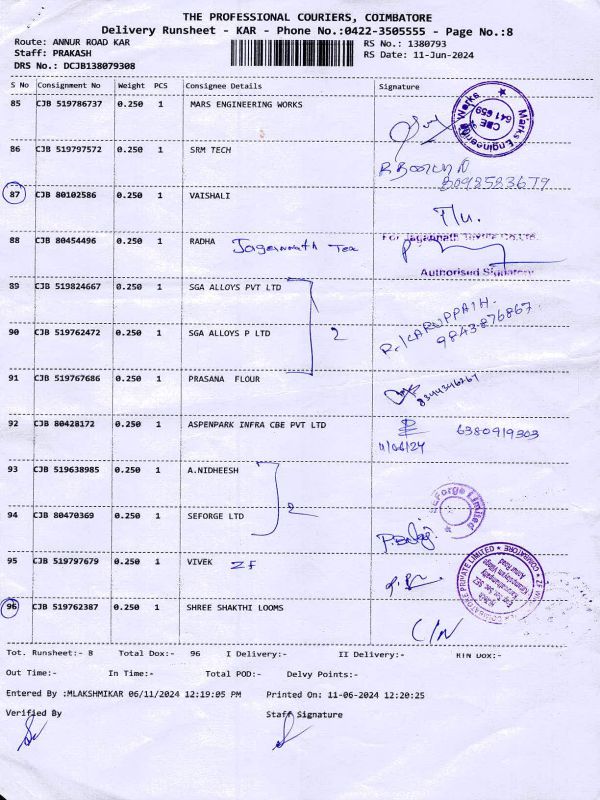 THE PROFESSIONAL COURIERS, COIMBATORE
Delivery Runsheet - KAR - Phone No.:0422-3505555 - Page No.:8
Route: ANNUR ROAD KAR
RS No.: 1380793
Staff: PRAKASH
RS Date: 11-Jun-2024
DRS No.: DCJB138079308
S No Consignment No Weight PCS Consignee Details Signature
85 CJB 519786737 0.250 1 MARS ENGINEERING WORKS
Marks Engineering Works
CBE
641 659
86 CJB 519797572 0.250 1 SRM TECH
8092523679
87 CJB 80102586 0.250 1 VAISHALI
88 CJB 80454496 0.250 1 RADHA Jagannath Tex
For Jagannath
Authorised Signatory
89 CJB 519824667 0.250 1 SGA ALLOYS PVT LTD
2
90 CJB 519762472 0.250 1 SGA ALLOYS P LTD
9843-876867
91 CJB 519767686 0.250 1 PRASANA FLOUR
8344346267
92 CJB 80428172 0.250 1 ASPENPARK INFRA CBE PVT LTD
11/06/24
6380919303
93 CJB 519638985 0.250 1 A.NIDHEESH
2
94 CJB 80470369 0.250 1 SEFORGE LTD
SeForge Limited
95 CJB 519797679 0.250 1 VIVEK ZF
COIMBATORE PRIVATE LIMITED
96 CJB 519762387 0.250 1 SHREE SHAKTHI LOOMS
C/N
Tot. Runsheet:- 8 Total Dox:- 96 I Delivery:- II Delivery:- RTN DOX:-
Out Time:- In Time:- Total POD:- Delvy Points:-
Entered By :MLAKSHMIKAR 06/11/2024 12:19:05 PM Printed On: 11-06-2024 12:20:25
Verified By Staff Signature